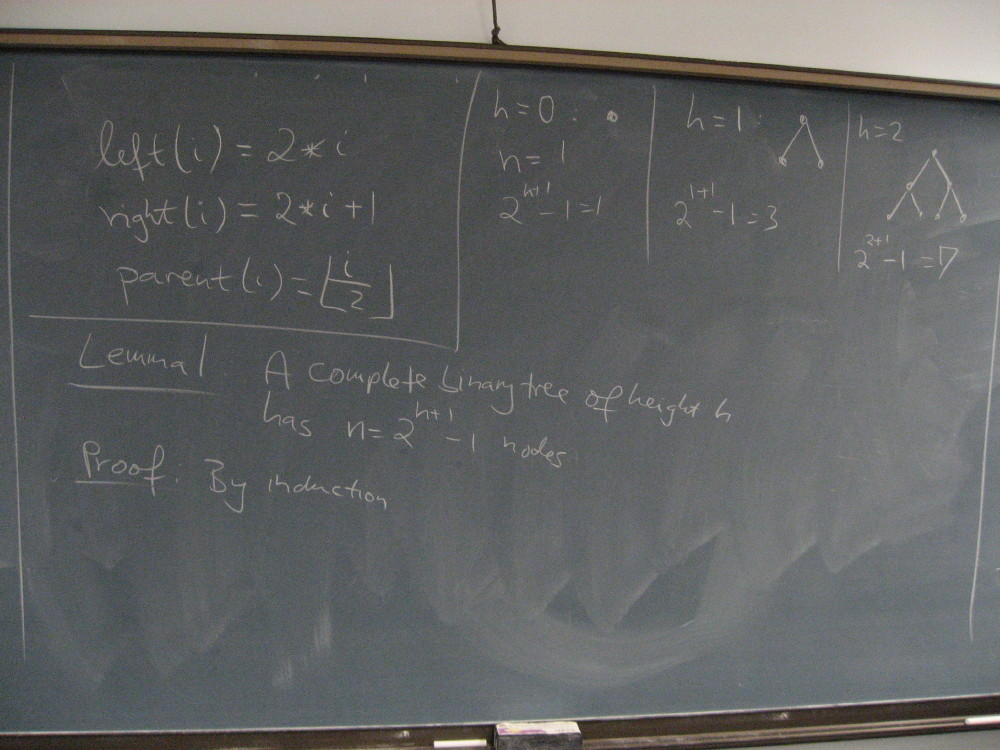 left(i) = 2*i
right(i) = 2*i+1
parent(i) = ⌊i/2⌋
h=0:
n=1
2^(h+1) -1=1
h=1:
2^(1+1) -1=3
h=2
2^(2+1) -1=7
Lemma 1 A complete binary tree of height h
has n=2^(h+1) -1 nodes
Proof: By induction